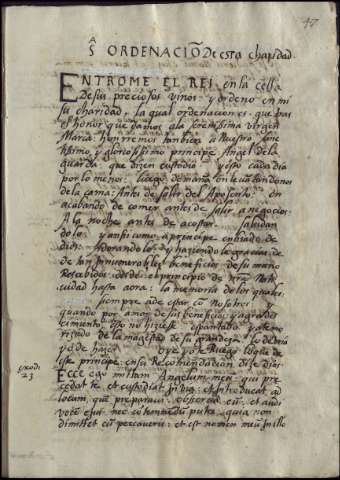 47
S ORDENACIÕ De esta charidad.
ENTROME EL REI en la cella
De sus preciosos vinos y ordeno en mi
su charidad. la qual ordenaciones que tras
el honor que damos ala serenissima virgen
Maria honrremos tambien a nuestro
tissimo y glorioso príncipe Angel de la
guarda: que dicen custodio y esto cada dia
por lo menos: luego de mañana en levantandonos
de la cama: Antes de salir del Aposento. en
acabando de comer antes de salir a negocios.
A la noche antes de acostar.
dolo: y ansi como a principe enbiado de
dios. Adorandole y haziendole gracias de
de tan innumerables beneficios de su mano
Recebidos desde el principio de
cuidad hasta aora: la memoria de los quales
siempre a de estar cõ nosotros
quando por amor de sus beneficios y agrades
cimiento esso no hiziesse espantado y atemo
rizado de la magestad de su grandeza lo devria
yo de hazer. oye yo te Ruego lo que de
este principe en su Recomendacion dise dios
exodi
23
Ecce ego mittam Angelum meũ qui pre
cedat te et custodiat in via et introducat ad
locum, quẽ preparavi. observa eũ et audi
vocẽ eius nec cõtemnẽdũ putes quia non
dimittet cũ peccaveris: et est nomen meũ in illo